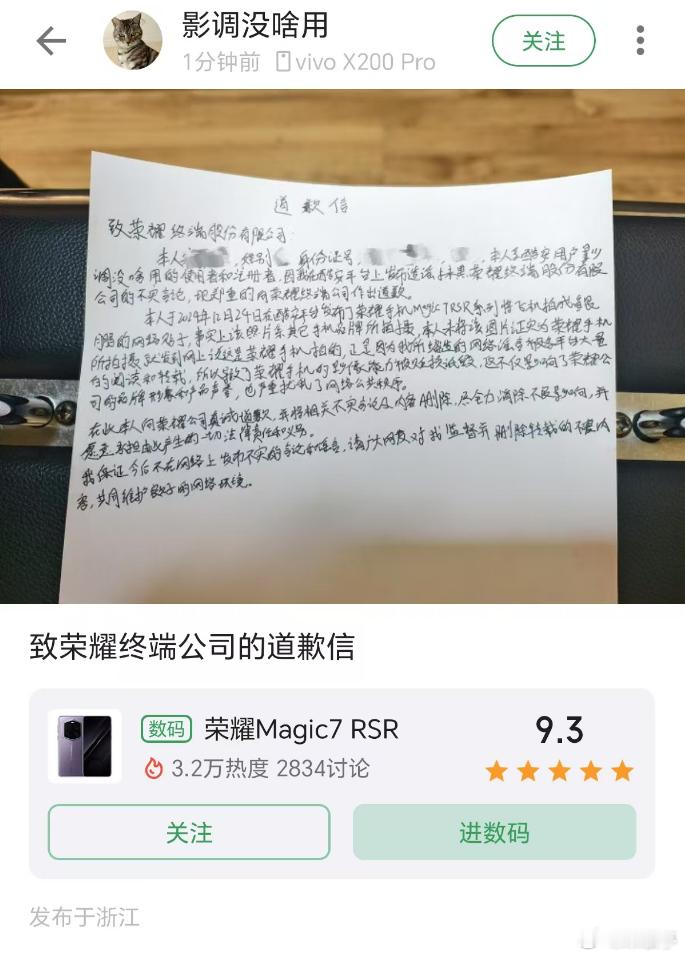 影调没啥用
1分钟前 vivo X200 Pro
关注
道歉信
致荣耀终端股份有限公司:
本人 性别 身份证号 本人是酷安用户影
调没啥用的使用者和注册者,因我在酷安平台上发布造谣抹黑荣耀终端股份有限
公司的不实言论,现郑重的向荣耀终端公司作出道歉。
本人于2024年12月24日在酷安平台发布了荣耀手机Magic7RSR系列将飞机拍成
的网络帖子,事实上该照片系其它手机品牌所拍摄,本人未将该图片证实为荣耀手机
所拍摄就发到网上说这是荣耀手机拍的,正是因为我所编造的网络谣言被各平台大量
的阅读和转载,所以导致了荣耀手机的影像能力被贬损诋毁,这不仅影响了荣耀公
司的品牌形象和产品声誉,也严重扰乱了网络公共秩序。
在此本人向荣耀公司真诚道歉,并将相关不实言论及内容删除,尽全力消除不良影响,并
愿意承担由此产生的一切法律责任和义务。
我保证今后不在网络上发布不实的言论和谣言,请广大网友对我监督并删除转载的不实内
容,共同维护良好的网络环境。
致荣耀终端公司的道歉信
数码 荣耀Magic7 RSR
9.3
3.2万热度 2834讨论
关注
进数码
发布于浙江